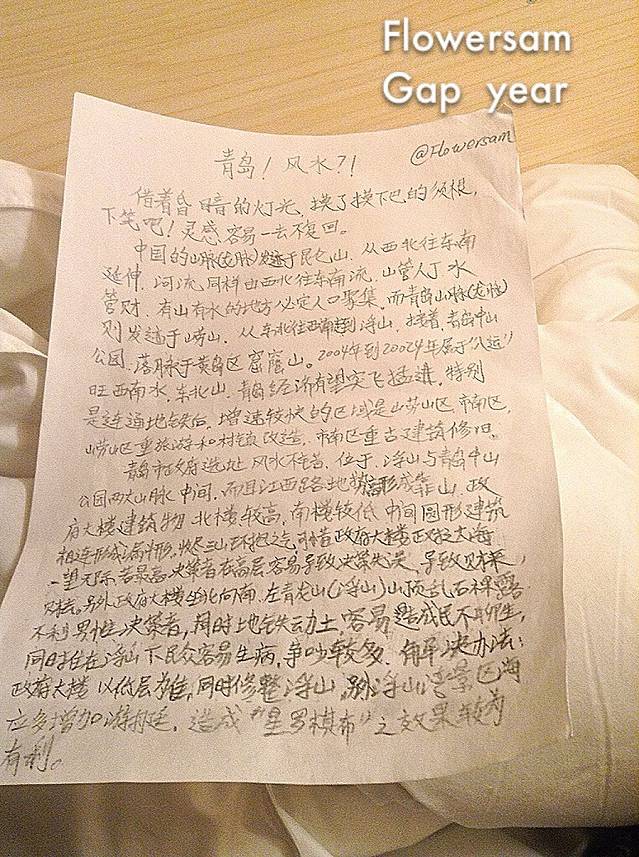 Flowersam
Gap year
@Flowersam
青岛！风水?！
借着昏暗的灯光，摸了摸下巴的须根，
下笔吧！灵感容易一去不复回。
中国的山脉(龙脉)发迹于昆仑山，从西北往东南
延伸，河流，同样由西北往东南流，山管人丁水
管财，有山有水的地方必定人口聚集，而青岛山脉(龙脉)
则发迹于崂山，从东北往西南起到浮山，接着，青岛中山
公园，落脉于黄岛区窟窿山。2004年到20024年属于“八运”
旺西南水，东北山，青岛经济有望突飞猛进，特别
是连通地铁后，增速较快的区域是崂山区，市南区，
崂山区重旅游和村镇改造，市南区重古建筑修旧。
青岛市政府选址风水不错，位于浮山与青岛中山
公园两大山脉中间，而且江西路地势高形成靠山，政
府大楼建筑物北楼较高，南楼较低中间圆形建筑
相连形成漏斗形，收尽三山环抱之气，可惜政府大楼正对大海
一望无际若最高决策者在高层容易导致决策失误，导致见财来，
财去。另外政府大楼坐北向南，左青龙山(浮山)山顶乱石裸露
不利男性决策者，同时地铁动土，容易造成民不聊生，
同时挂在浮山下民众容易生病，争吵较多。解决办法：
政府大楼以低层为准，同时修整浮山，另外浮山湾景区海
应多增加游艇，造成“星罗棋布”之效果较为
有利。